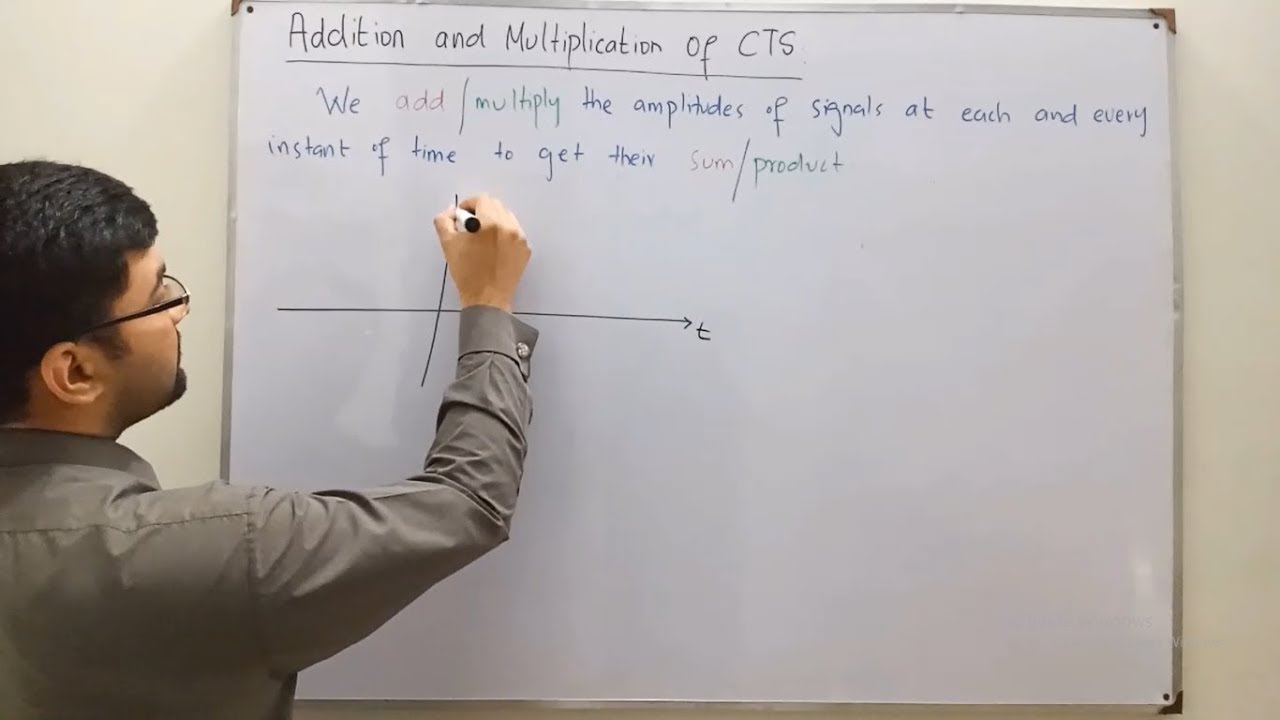 Addition and Multiplication of CTS.
We add/multiply the amplitudes of signals at each and every
instant of time to get their sum/product
t